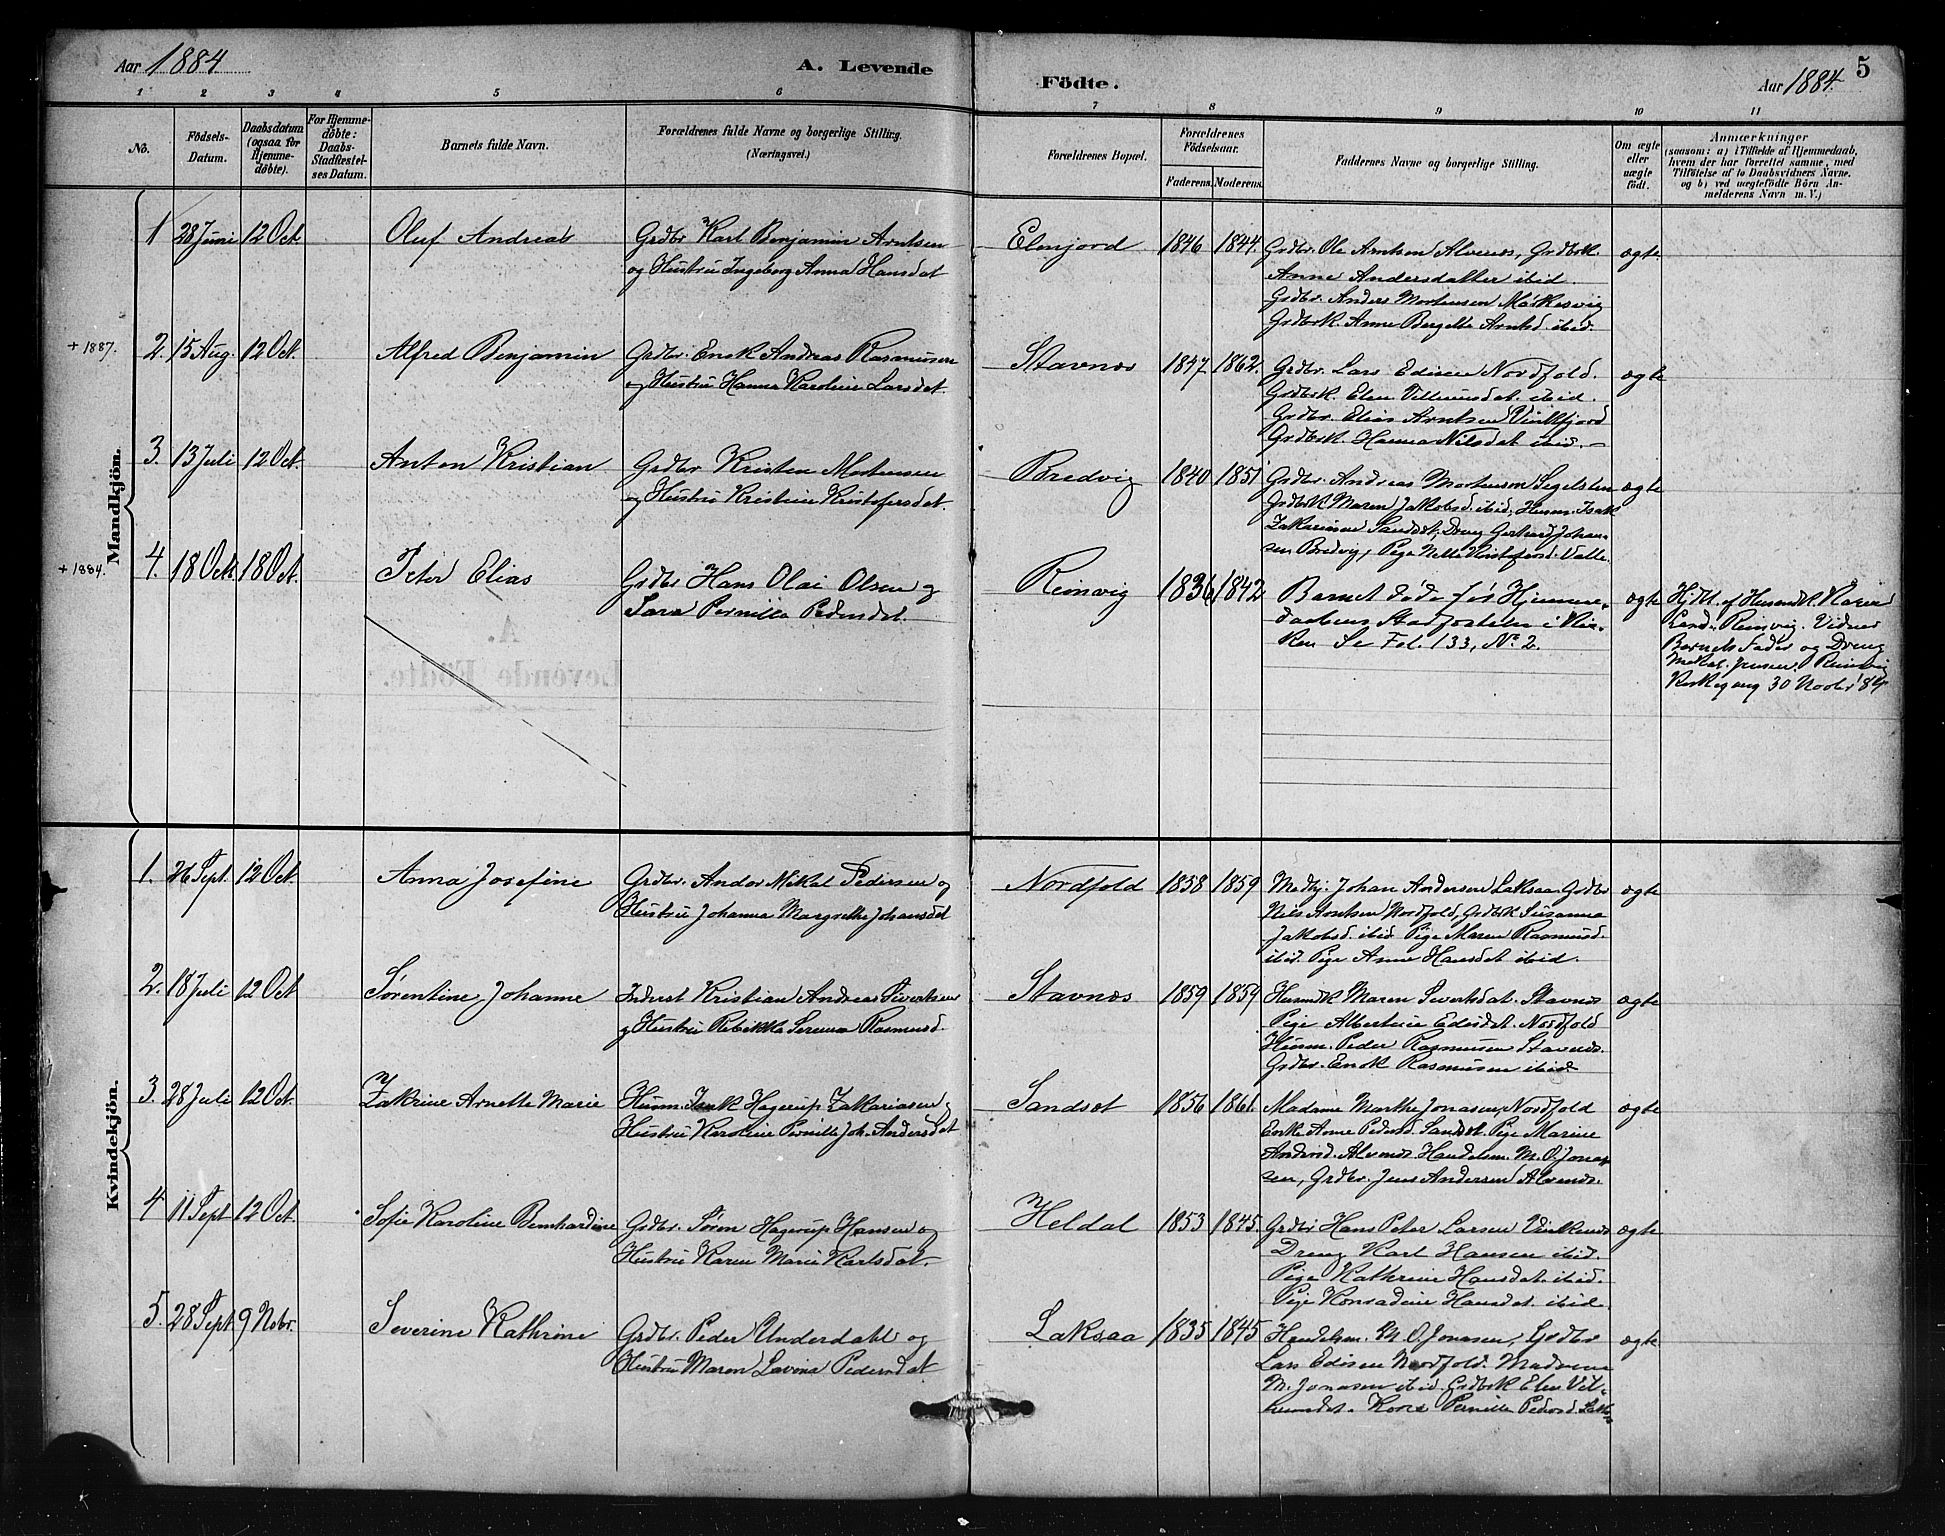 Aar 1884
A. Levende
Födte.
Aar 1884.
5
1 2 3 4 5 6 7 8 9 10 11
No.
Födsels-
Datum.
Daabsdatum
(ogsaa for
Hjemme-
døbte).
For Hjemme-
døbte:
Daabs-
Stadfæstel-
ses Datum.
Barnets fulde Navn.
Forældrenes fulde Navne og borgerlige Stilling.
(Næringsvei.)
Forældrenes Bopæl.
Forældrenes
Födselsaar.
Faderens. Moderens.
Faddernes Navne og borgerlige Stilling.
Om ægte
eller
uægte
födt.
Anmærkninger
(saasom: a) i Tilfælde af Hjemmedaab,
hvem der har forrettet samme, med
Tilföielse af to Daabsvidners Navne.
og b) ved uægtefödte Börn An-
melderens Navn m. V.)
Mandkjön.
1 28 Juni 12 Oct. Oluf Andreas
Grdbr Karl Benjamin Arntsen
og Hustru Ingeborg Anna Hansdat
Elenjord 1846 1844.
Grdbr. Ole Arntsen Alvenes, Grdbrk.
Anne Andersdatter ibid.
Grdbr. Anders Mortensen Mørkesvig
Grdbrk. Anne Bergitte Arntsd. ibid.
ægte
+ 1887.
2. 15 Aug. 12 Oct. Alfred Benjamin
Grdbr. Enok Andreas Rasmusen
og Hustru Hanna Karoline Larsdat.
Stavnes 1847 1862.
Grdbr. Lars Edisen Nordfold.
Grdbrk. Elen Villumsdat. ibid.
Grdbr. Elias Arntsen Vinkfjord
Grdbrk. Hanna Nilsdat. ibid.
ægte
3. 13 Juli 12 Oct. Anton Kristian
Grdbr Kristen Mortensen
og Hustru Kristine Kristofersdat.
Bredvig 1840 1851
Grdbr. Andreas Mortensen Segelsten
Grdbrk Maren Jakobsd. ibid, Husm. Isak
Zakariasen Sandset, Dreng Gerhard Johan-
sen Bredvig, Pige Nella Kristofersd. Valle.
ægte
+ 1884.
4. 18 Oct. 18 Oct. Peter Elias
Grdbr Hans Olai Olsen og
Sara Pernilla Pedersdat.
Reinvig 1836 1842
Barnet døde før Hjemme-
daabens Stadfæstelse i Kir-
ken Se Fol. 133, No 2.
ægte
Hjdbt. af Husmdk. Karen
Reinvig. Vidner
Barnets Fader og Dreng
Jensen, Reinvig
Kirkegang 30 Novbr '84.
A.
Levende Födte.
Kvindekjön.
1. 26 Sept. 12 Oct. Anna Josefine
Grdbr. Andor Mikal Pedersen og
Hustru Johanna Margrethe Johansdat
Nordfold 1858 1859
Johan Andersen Laksaa, Grdbr
Nils Arntsen Nordfold, Grdbrk Susanna
Jakobsd. ibid. Pige Maren Rasmusd.
ibid. Pige Anne Hansdat ibid.
ægte
2. 18 Juli 12 Oct. Sørentine Johanne
Inderst Kristian Andreas Sivertsen
og Hustru Rebekka Serena Rasmusd.
Stavnes 1859 1859
Husmdk Maren Sivertsdat. Stavnes
Pige Albertine Edisdat. Nordfold
Husm. Peder Rasmusen Stavnes.
Grdbr. Enok Rasmusen ibid
ægte
3. 28 Juli 12 Oct. Zakrine Arnette Marie
Husm. Isak Hagerup Zakariasen,
Hustru Karoline Pernille Joh. Andersdat
Sandset 1856 1861.
Madame Marthe Jonasen, Nordfold
Enke Anne Pedersd. Sandset. Pige Marine
Andersd. Alvenes Handelsm. M. O. Jona-
sen, Grdbr. Jens Andersen Alvenes.
ægte
4 11 Sept 12 Oct. Sofie Karoline Bernhardine
Grdbr. Søren Hagerup Hansen og
Hustru Karen Marie Karlsdat.
Heldal 1853 1845.
Grdbr Hans Peter Larsen Vinkenes
Dreng Karl Hansen ibid.
Pige Kathrine Hansdat. ibid.
Pige Konradine Hansdat. ibid.
ægte
5. 28 Sept. 9 Nobr. Severine Kathrine
Grdbr. Peder Underdahl og
Hustru Maren Lavina Pedersdat
Laksaa 1835 1845
Handelsm. M. O. Jonasen, Grdbr
Lars Edisen Nordfold. Madame
M. Jonasen ibid. Grdbrk Elen Vil-
lumsdat. Kone Pernille Pedersd.
ægte